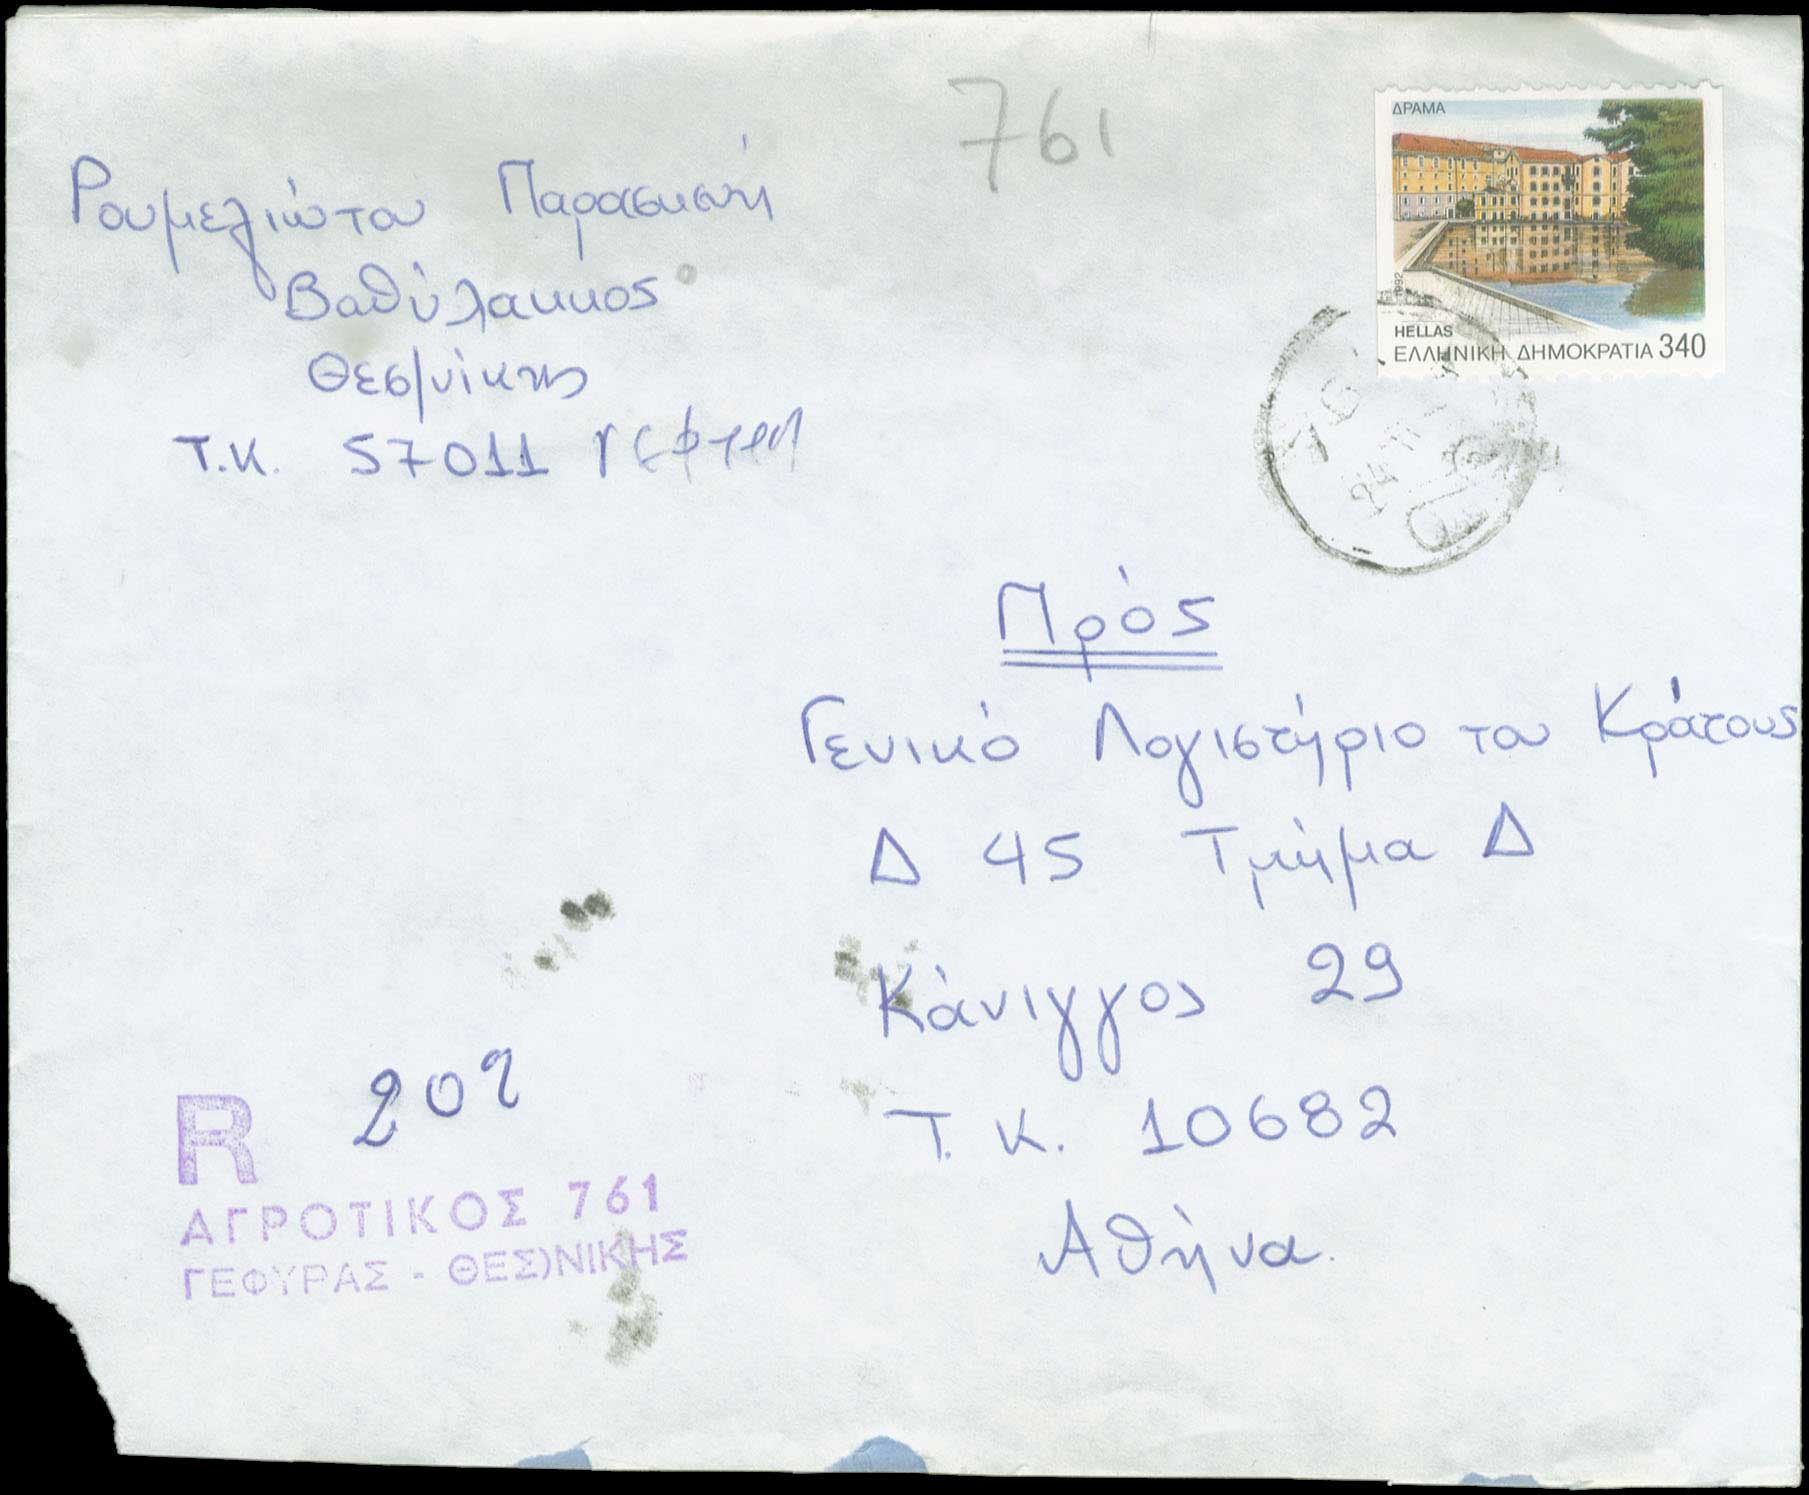 761
ΔΡΑΜΑ
1992
HELLAS
ΕΛΛΗΝΙΚΗ ΔΗΜΟΚΡΑΤΙΑ 340
Ρουμελιώτου Παρασκευή
Βαθύλακκος
Θεσ/νίκης
Τ.Κ. 57011 Γέφυρα
Πρός
Γενικό Λογιστήριο του Κράτους
Δ 45 Τμήμα Δ
Κάνιγγος 29
Τ.Κ. 10682
Αθήνα.
R 202
ΑΓΡΟΤΙΚΟΣ 761
ΓΕΦΥΡΑΣ - ΘΕΣ)ΝΙΚΗΣ